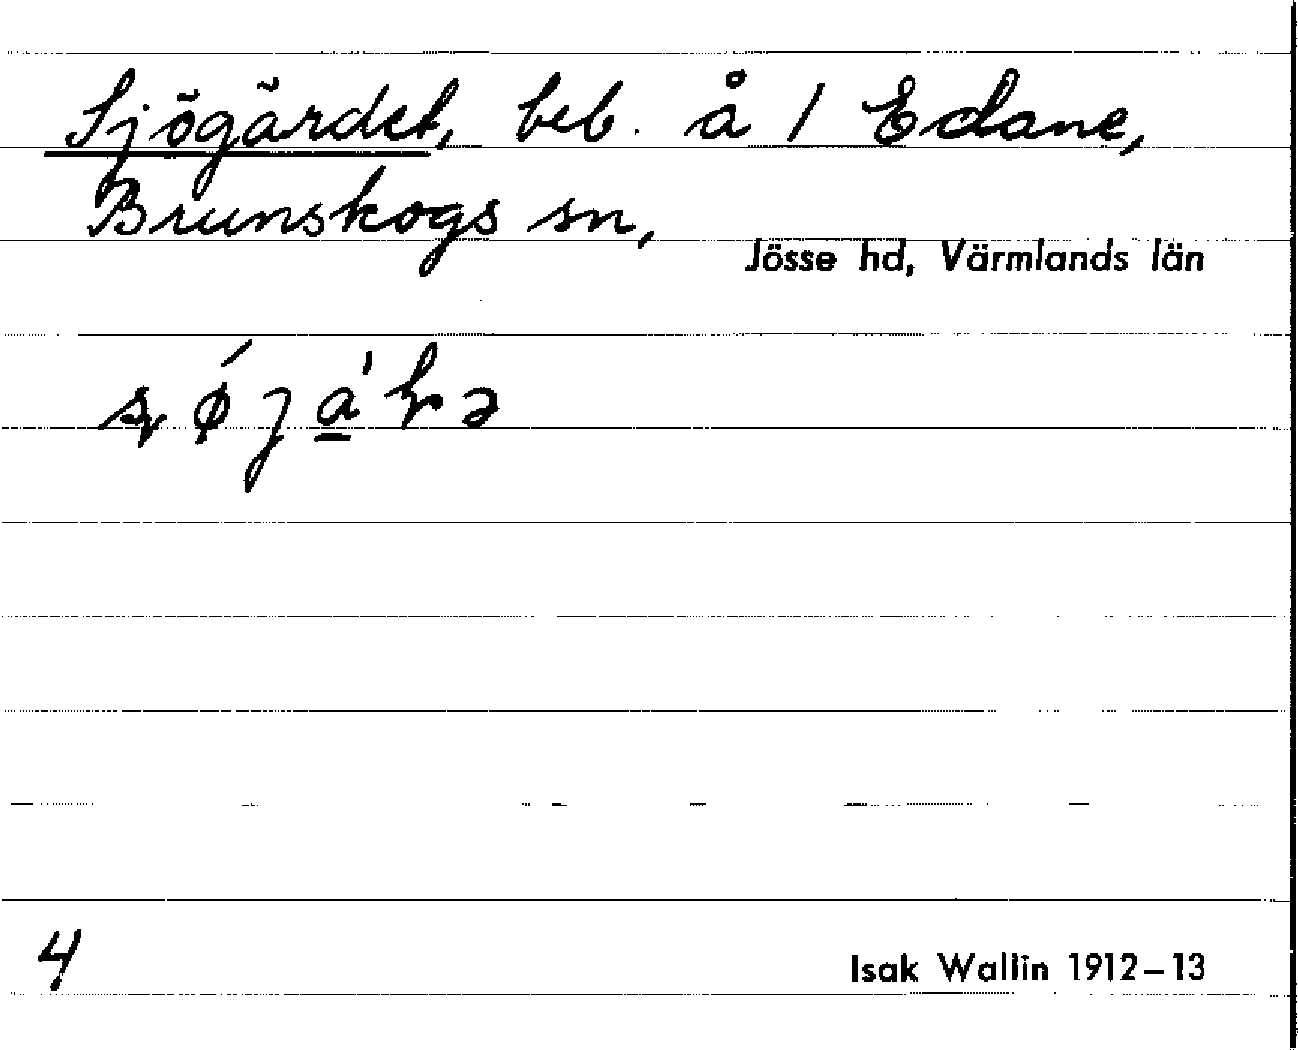 Sjögärdet, beb. å 1 Edane,
Brunskogs sn,
Jösse hd, Värmlands län
4
Isak Wallin 1912–13